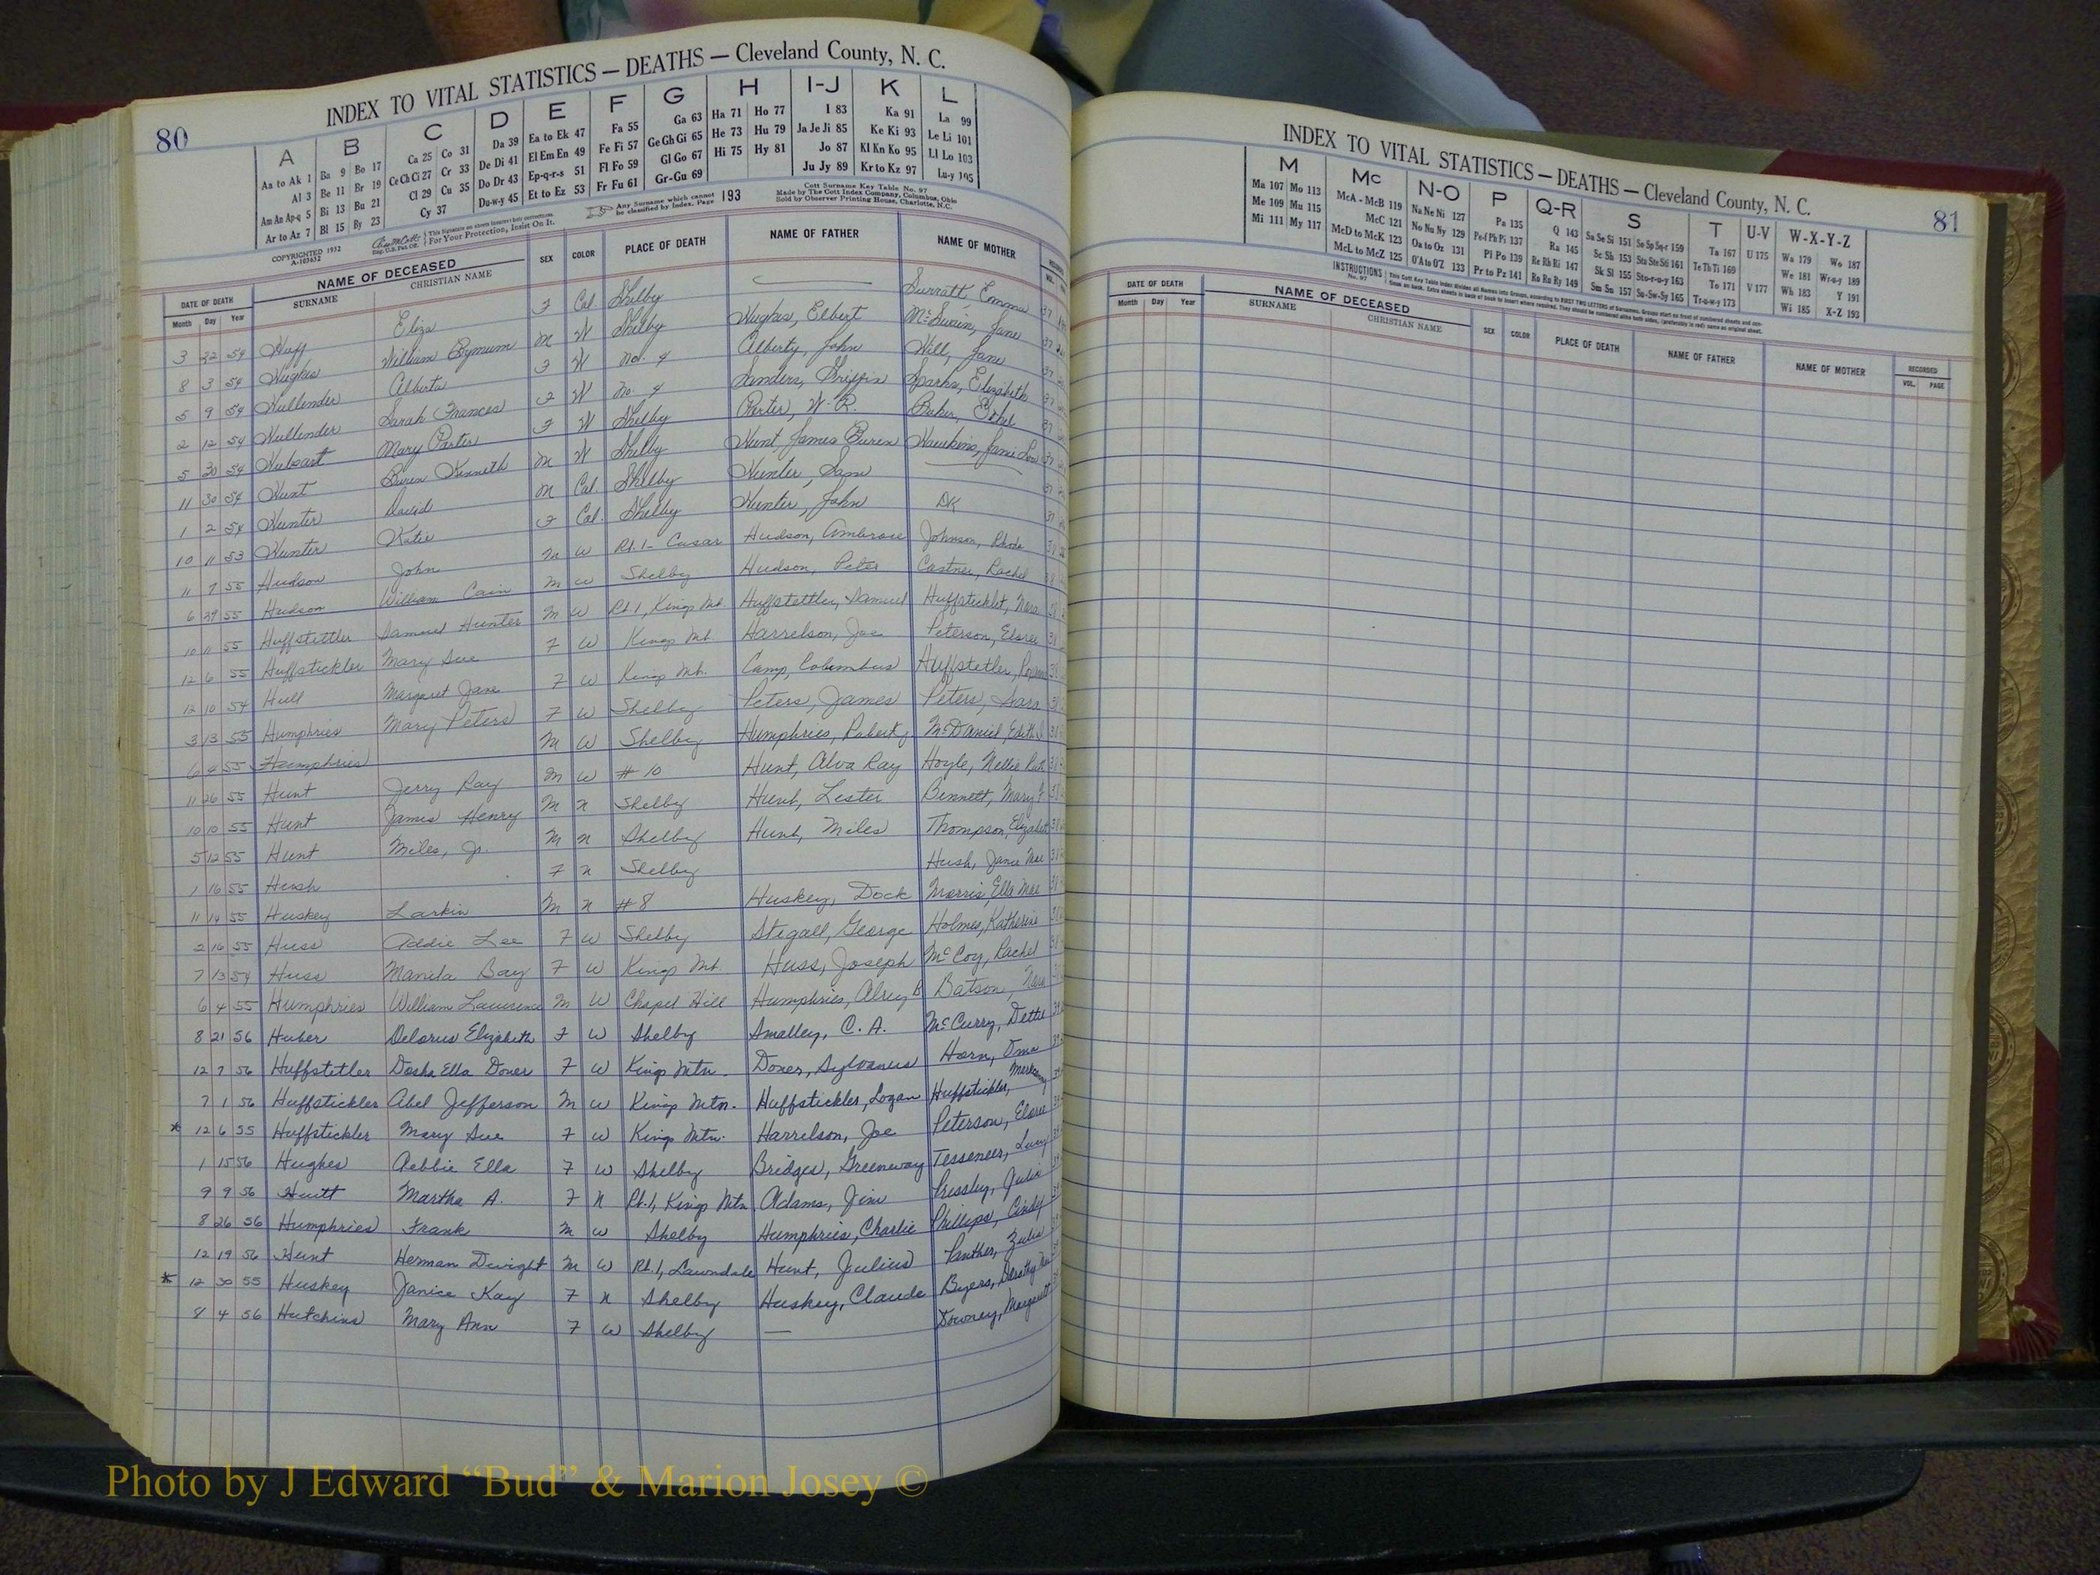 80
INDEX TO VITAL STATISTICS — DEATHS — Cleveland County, N. C.
A B C D E F G H I-J K L
Aa to Ak 1 Ba 9 Bo 17 Ca 25 Co 31 Da 39 Ea to Ek 47 Fa 55 Ga 63 Ha 71 Ho 77 I 83 Ka 91 La 99
Al 3 Be 11 Br 19 Ce Ch Ci 27 Cr 33 De Di 41 El Em En 49 Fe Fi 57 Ge Gh Gi 65 He 73 Hu 79 Ja Je Ji 85 Ke Ki 93 Le Li 101
Am An Ap-q 5 Bi 13 Bu 21 Cl 29 Cu 35 Do Dr 43 Ep-q-r-s 51 Fl Fo 59 Gl Go 67 Hi 75 Hy 81 Jo 87 Kl Kn Ko 95 Ll Lo 103
Ar to Az 7 Bl 15 By 23 Cy 37 Du-w-y 45 Et to Ez 53 Fr Fu 61 Gr-Gu 69 Ju Jy 89 Kr to Kz 97 Lu-y 105
COPYRIGHTED 1932
A-103652
This Signature on sheets insures index correctness.
For Your Protection, Insist On It.
Any Surname which cannot be classified by Index, Page 193
Cott Surname Key Table No. 97
Made by The Cott Index Company, Columbus, Ohio
Sold by Observer Printing House, Charlotte, N.C.
DATE OF DEATH NAME OF DECEASED SEX COLOR PLACE OF DEATH NAME OF FATHER NAME OF MOTHER
Month Day Year SURNAME CHRISTIAN NAME
3 22 54 Huff Eliza F Col. Shelby — Surratt, Emma 37
8 3 54 Hughes William Bynum M W Shelby Hughes, Elbert McSwain, Jane 37
5 9 54 Hullender Alberta F W No. 4 Alberty, John Will, Jane 37
2 12 54 Hullender Sarah Frances F W No. 4 Sanders, Griffin Sparks, Elizabeth 37
5 20 54 Mary Porter F W Shelby Porter, W. R. Baker, 37
11 30 54 Hunt Buren Kenneth M W Shelby Hunt James Buren Hawkins, Janie Lou 37
1 2 54 Hunter David M Col. Shelby Hunter, Sam — 37
10 11 53 Hunter Katie F Col. Shelby Hunter, John DK 37
11 7 55 Hudson John M W Rt. 1 - Casar Hudson, Ambrose Johnson, Rhoda
6 29 55 Hudson William Cain M W Shelby Hudson, Peter Costner, Rachel 38
10 11 55 Huffstettler Samuel Hunter M W Rt. 1, Kings Mt. Huffstettler, Samuel Huffsticklet, Nora 38
12 6 55 Huffstickler Mary Sue F W Kings Mt. Harrelson, Joe Peterson, Eloree 38
12 10 54 Hull Margaret Jane F W Kings Mt. Camp, Columbus Huffstetler, 38
3 13 55 Humphries Mary Peters F W Shelby Peters, James Peters, Sara 38
6 4 55 Humphries M W Shelby Humphries, Robert McDaniel, Edith 38
11 26 55 Hunt Jerry Ray M W # 10 Hunt, Alva Ray Hoyle, Nellie Ruth 38
10 10 55 Hunt James Henry M N Shelby Hunt, Lester Bennett, Mary F 38
5 12 55 Hunt Miles, Jr. M N Shelby Hunt, Miles Thompson, Elizabeth 38
1 16 55 Hush F N Shelby Hush, Janie Mae 38
11 14 55 Huskey Larkin M N # 8 Huskey, Dock Morris, Ella Mae 38
2 16 55 Huss Addie Lee F W Shelby Stegall, George Holmes, Katherine 38
7 13 54 Huss Manila Bay F W Kings Mt. Huss, Joseph McCoy, Rachel 38
6 4 55 Humphries William Lawrence M W Chapel Hill Humphries, Alrey B Batson,
8 21 56 Huber Delorus Elizabeth F W Shelby Smalley, C. A. McCurry, 39
12 7 56 Huffstetler Dosha Ella Dover F W Kings Mtn. Dover, Sylvanus Horn, Oma 39
7 1 56 Huffstickler Abel Jefferson M W Kings Mtn. Huffstickler, Logan Huffstickler, 39
* 12 6 55 Huffstickler Mary Sue F W Kings Mtn. Harrelson, Joe Peterson, Eloree 39
1 15 56 Hughes Aebbie Ella F W Shelby Bridges, Greenway Tesseneer, Lucy
9 9 56 Huitt Martha A. F N Rt. 1, Kings Mtn Adams, Jim Pressley, Julia
8 26 56 Humphries Frank M W Shelby Humphries, Charlie Phillips, Cindy
12 19 56 Hunt Herman Dwight M W Rt. 1, Lawndale Hunt, Julius Panther, Zulia
* 12 30 55 Huskey Janice Kay F N Shelby Huskey, Claude Byers, Dorothy Mae
8 4 56 Hutchins Mary Ann F W Shelby — Downey, Margarett
81
INDEX TO VITAL STATISTICS — DEATHS — Cleveland County, N. C.
M Mc N-O P Q-R S T U-V W-X-Y-Z
Ma 107 Mo 113 McA - McB 119 Na Ne Ni 127 Pa 135 Q 143 Sa Se Si 151 So Sp Sq-r 159 Ta 167 U 175 Wa 179 Wo 187
Me 109 Mu 115 McC 121 No Nu Ny 129 Pe-f Ph Pi 137 Ra 145 Sc Sh 153 Sta Ste Sti 161 Te Th Ti 169 V 177 We 181 Wr-u-y 189
Mi 111 My 117 McD to McK 123 Oa to Oz 131 Pl Po 139 Re Rh Ri 147 Sk Sl 155 Sto-r-u-y 163 To 171 Wh 183 Y 191
McL to McZ 125 O'A to O'Z 133 Pr to Pz 141 Ro Ru Ry 149 Sm Sn 157 Su-Sw-Sy 165 Tr-u-w-y 173 Wi 185 X-Z 193
INSTRUCTIONS
No. 97
This Cott Key Table Index divides all Names into Groups, according to FIRST TWO LETTERS of Surnames.
DATE OF DEATH NAME OF DECEASED SEX COLOR PLACE OF DEATH NAME OF FATHER NAME OF MOTHER RECORDED
Month Day Year SURNAME CHRISTIAN NAME VOL. PAGE
Photo by J Edward “Bud” & Marion Josey ©